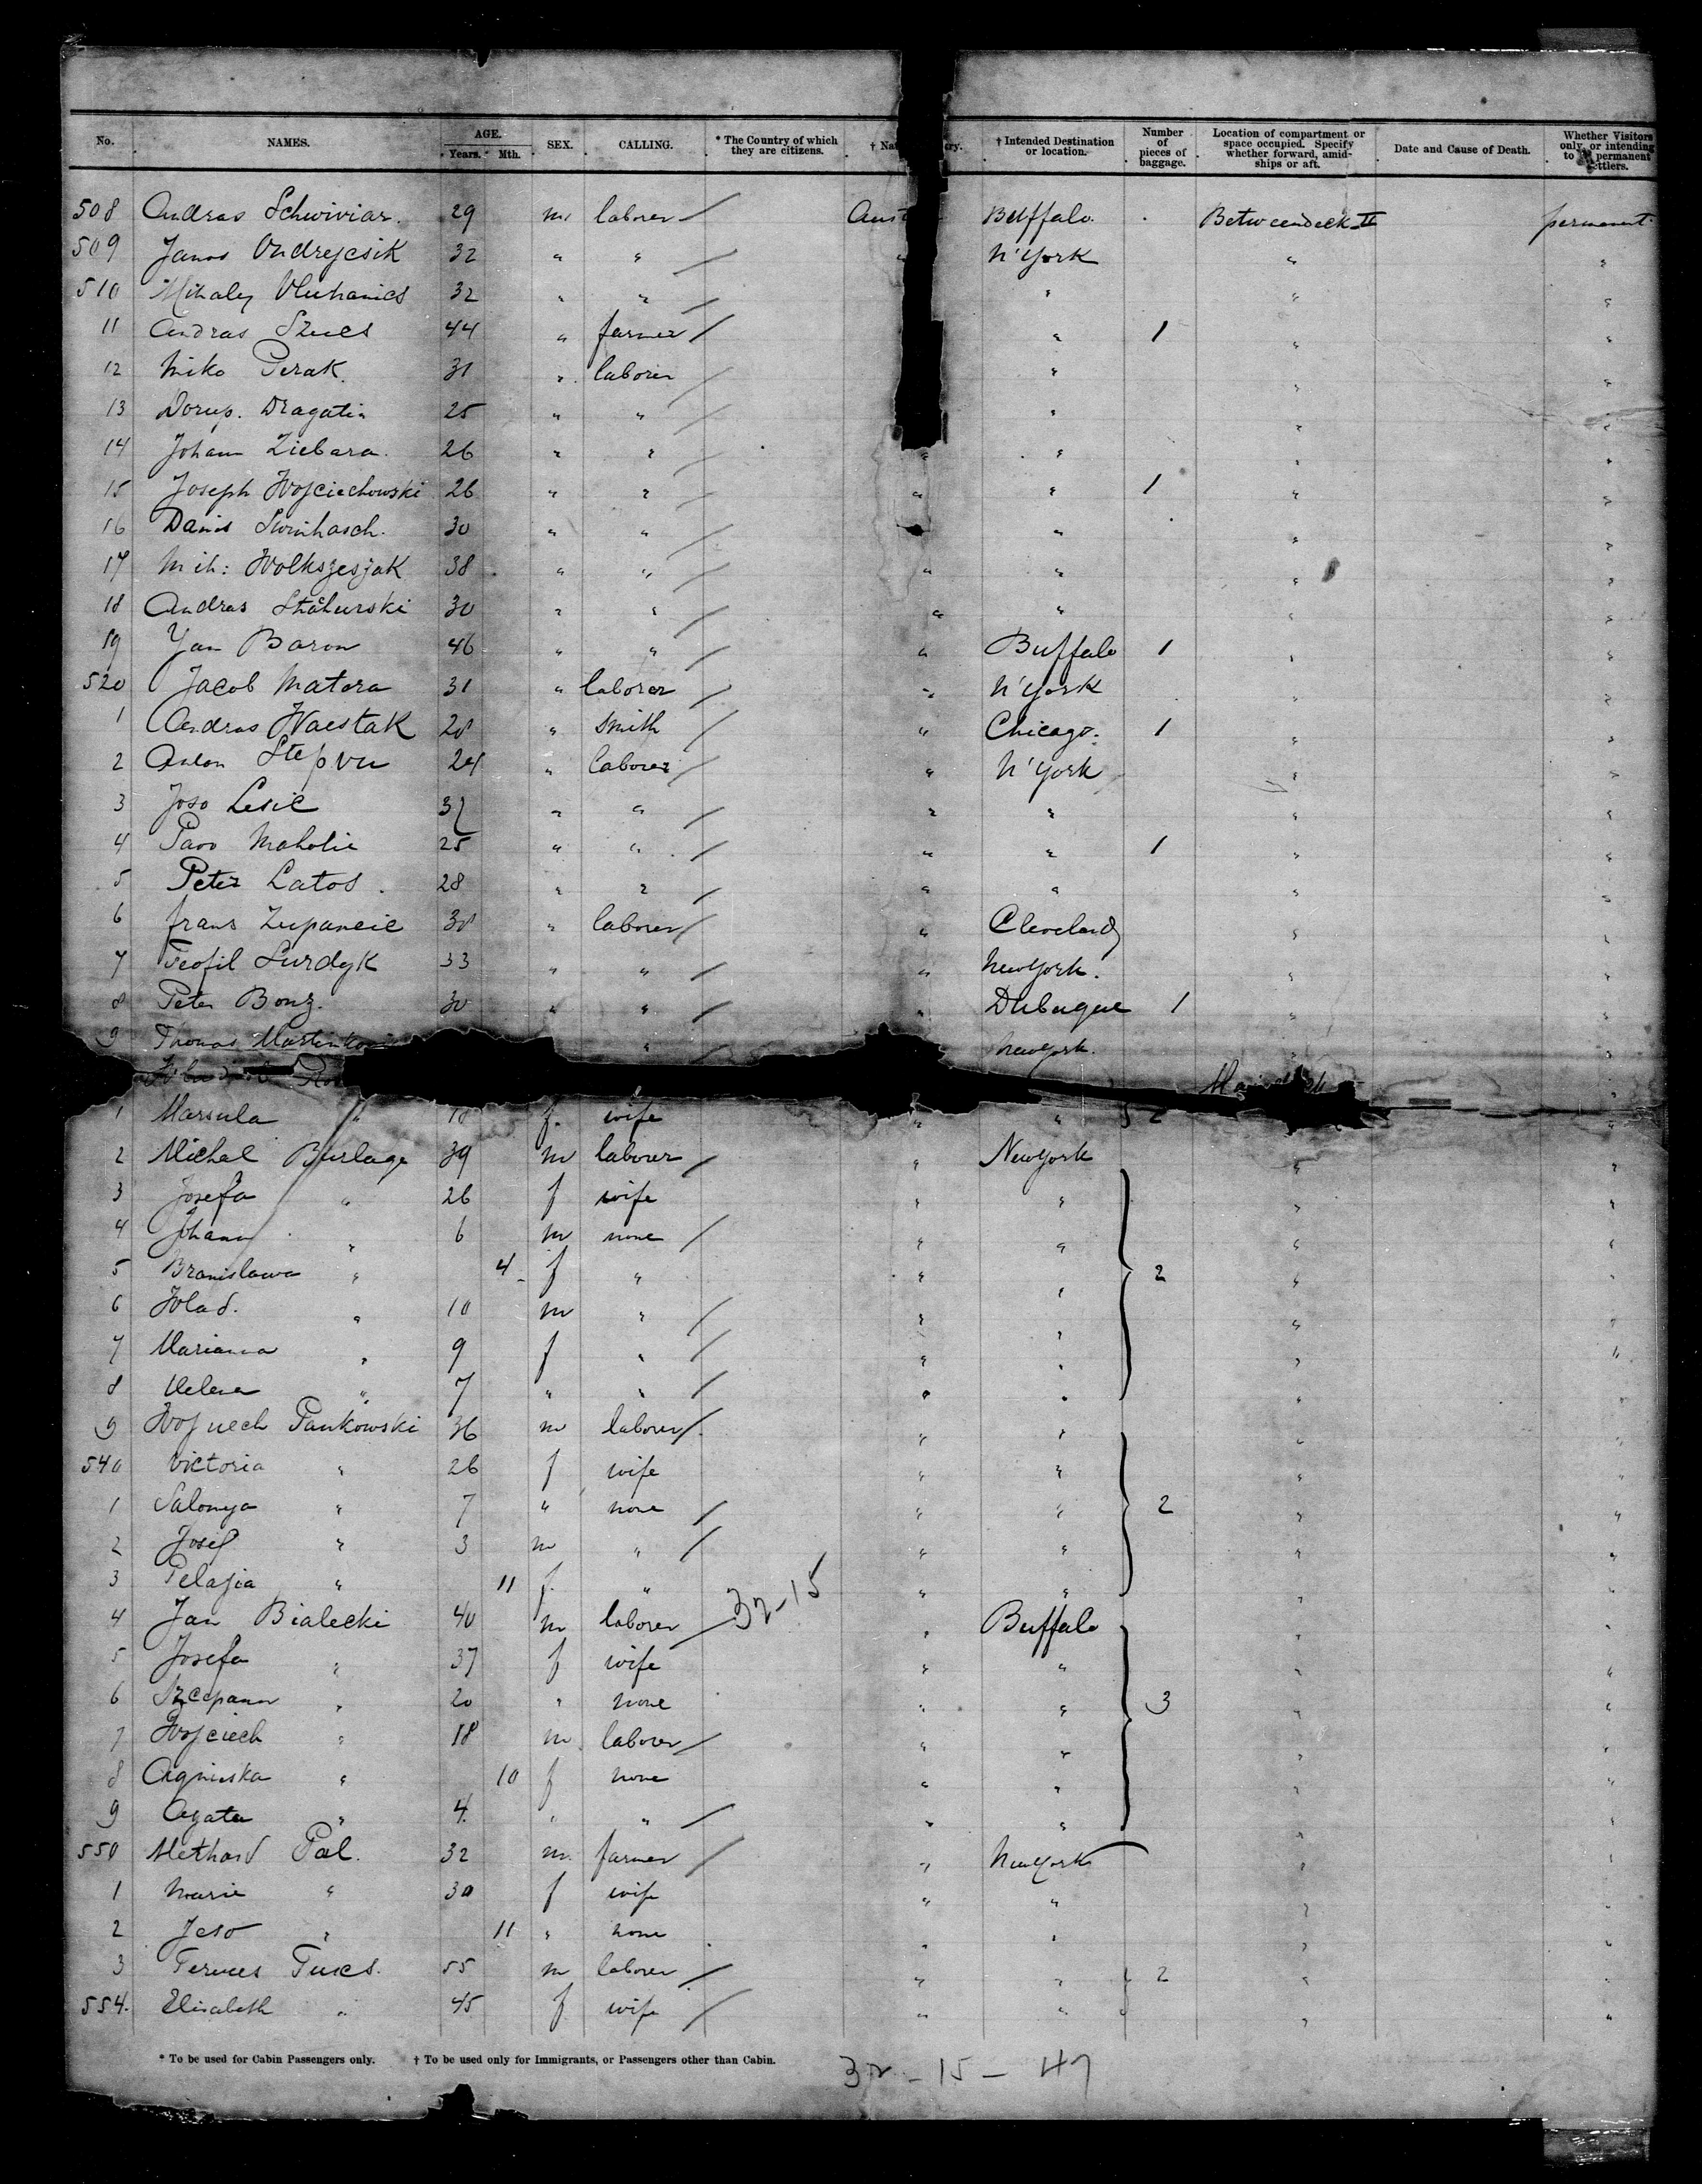 No. NAMES. AGE. Years. Mth. SEX. CALLING. * The Country of which they are citizens. † Nat ry. † Intended Destination or location. Number of pieces of baggage. Location of compartment or space occupied. Specify whether forward, amidships or aft. Date and Cause of Death. Whether Visitors only, or intending to permanent settlers.
508 Andras Schwiviar. 29 m laborer / Aust Buffalo. Betweendeck II permanent
509 Janos Ondrejcsik 32 " " / " N'York " "
510 Mihaly 32 " " / " " "
11 Andras Szucs 44 " farmer / " 1 " "
12 Miko Perak. 31 " laborer / " " "
13 Dragatin 25 " " / " " "
14 Johann Ziebara. 26 " " / " " " "
15 Joseph Wojciechowski 26 " " / " " 1 " "
16 Danis Swinhasch. 30 " " / " " "
17 Mih: Wolkszesjak 38 " " / " " " "
18 Andras 30 " " / " " " "
19 Yan Baron 46 " " / " Buffalo 1 " "
520 Jacob Matera 31 " laborer / " N'York " "
1 Andras Waestak 28 " Smith / " Chicago. 1 " "
2 Anton 24 " laborer / " N'York " "
3 Joso Lesic " " / " " " "
4 Pavo Maholic 25 " " / " " 1 " "
5 Peter Latos. 28 " " / " " " "
6 Frans Zupancic 30 " laborer / " Cleveland " "
7 Teofil Surdyk 33 " " / " NewYork. " "
8 Peter Bonz. 30 " " / " Dubuque 1 " "
9 Thomas " / NewYork. " "
1 Marsula " 18 f. wife " " 2 "
2 Michal Burlage 39 m laborer / " NewYork " "
3 Josefa " 26 f wife " " " "
4 Johann " 6 m none / " " " "
5 Bronislawa " 4 f " " " 2 " "
6 Wlad. " 10 m " / " " " "
7 Marianna " 9 f " / " " " "
8 Helena " 7 " " / " " " "
9 Wojciech Pankowski 36 m laborer / " " " "
540 Victoria " 26 f wife " " " "
1 Salomya " 7 " none / " " 2 " "
2 Josef " 3 m " / " " " "
3 Pelagia " 11 f. " " " " "
4 Jan Bialecki 40 m laborer / 32-15 " Buffalo " "
5 Josefa " 37 f wife " " " "
6 Szcepann " 20 " none " " 3 " "
7 Wojciech " 18 m laborer / " " " "
8 Agnieska " 10 f none " " " "
9 Agata " 4. " " / " " " "
550 Methard Pal. 32 m. farmer / " NewYork " "
1 Marie " 30 f wife " " " "
2 Jeso " 11 " none " " " "
3 55 m laborer / " " 2 " "
554. Elisabeth " 45 f wife / " " " "
* To be used for Cabin Passengers only. † To be used only for Immigrants, or Passengers other than Cabin.
32 - 15 - 47